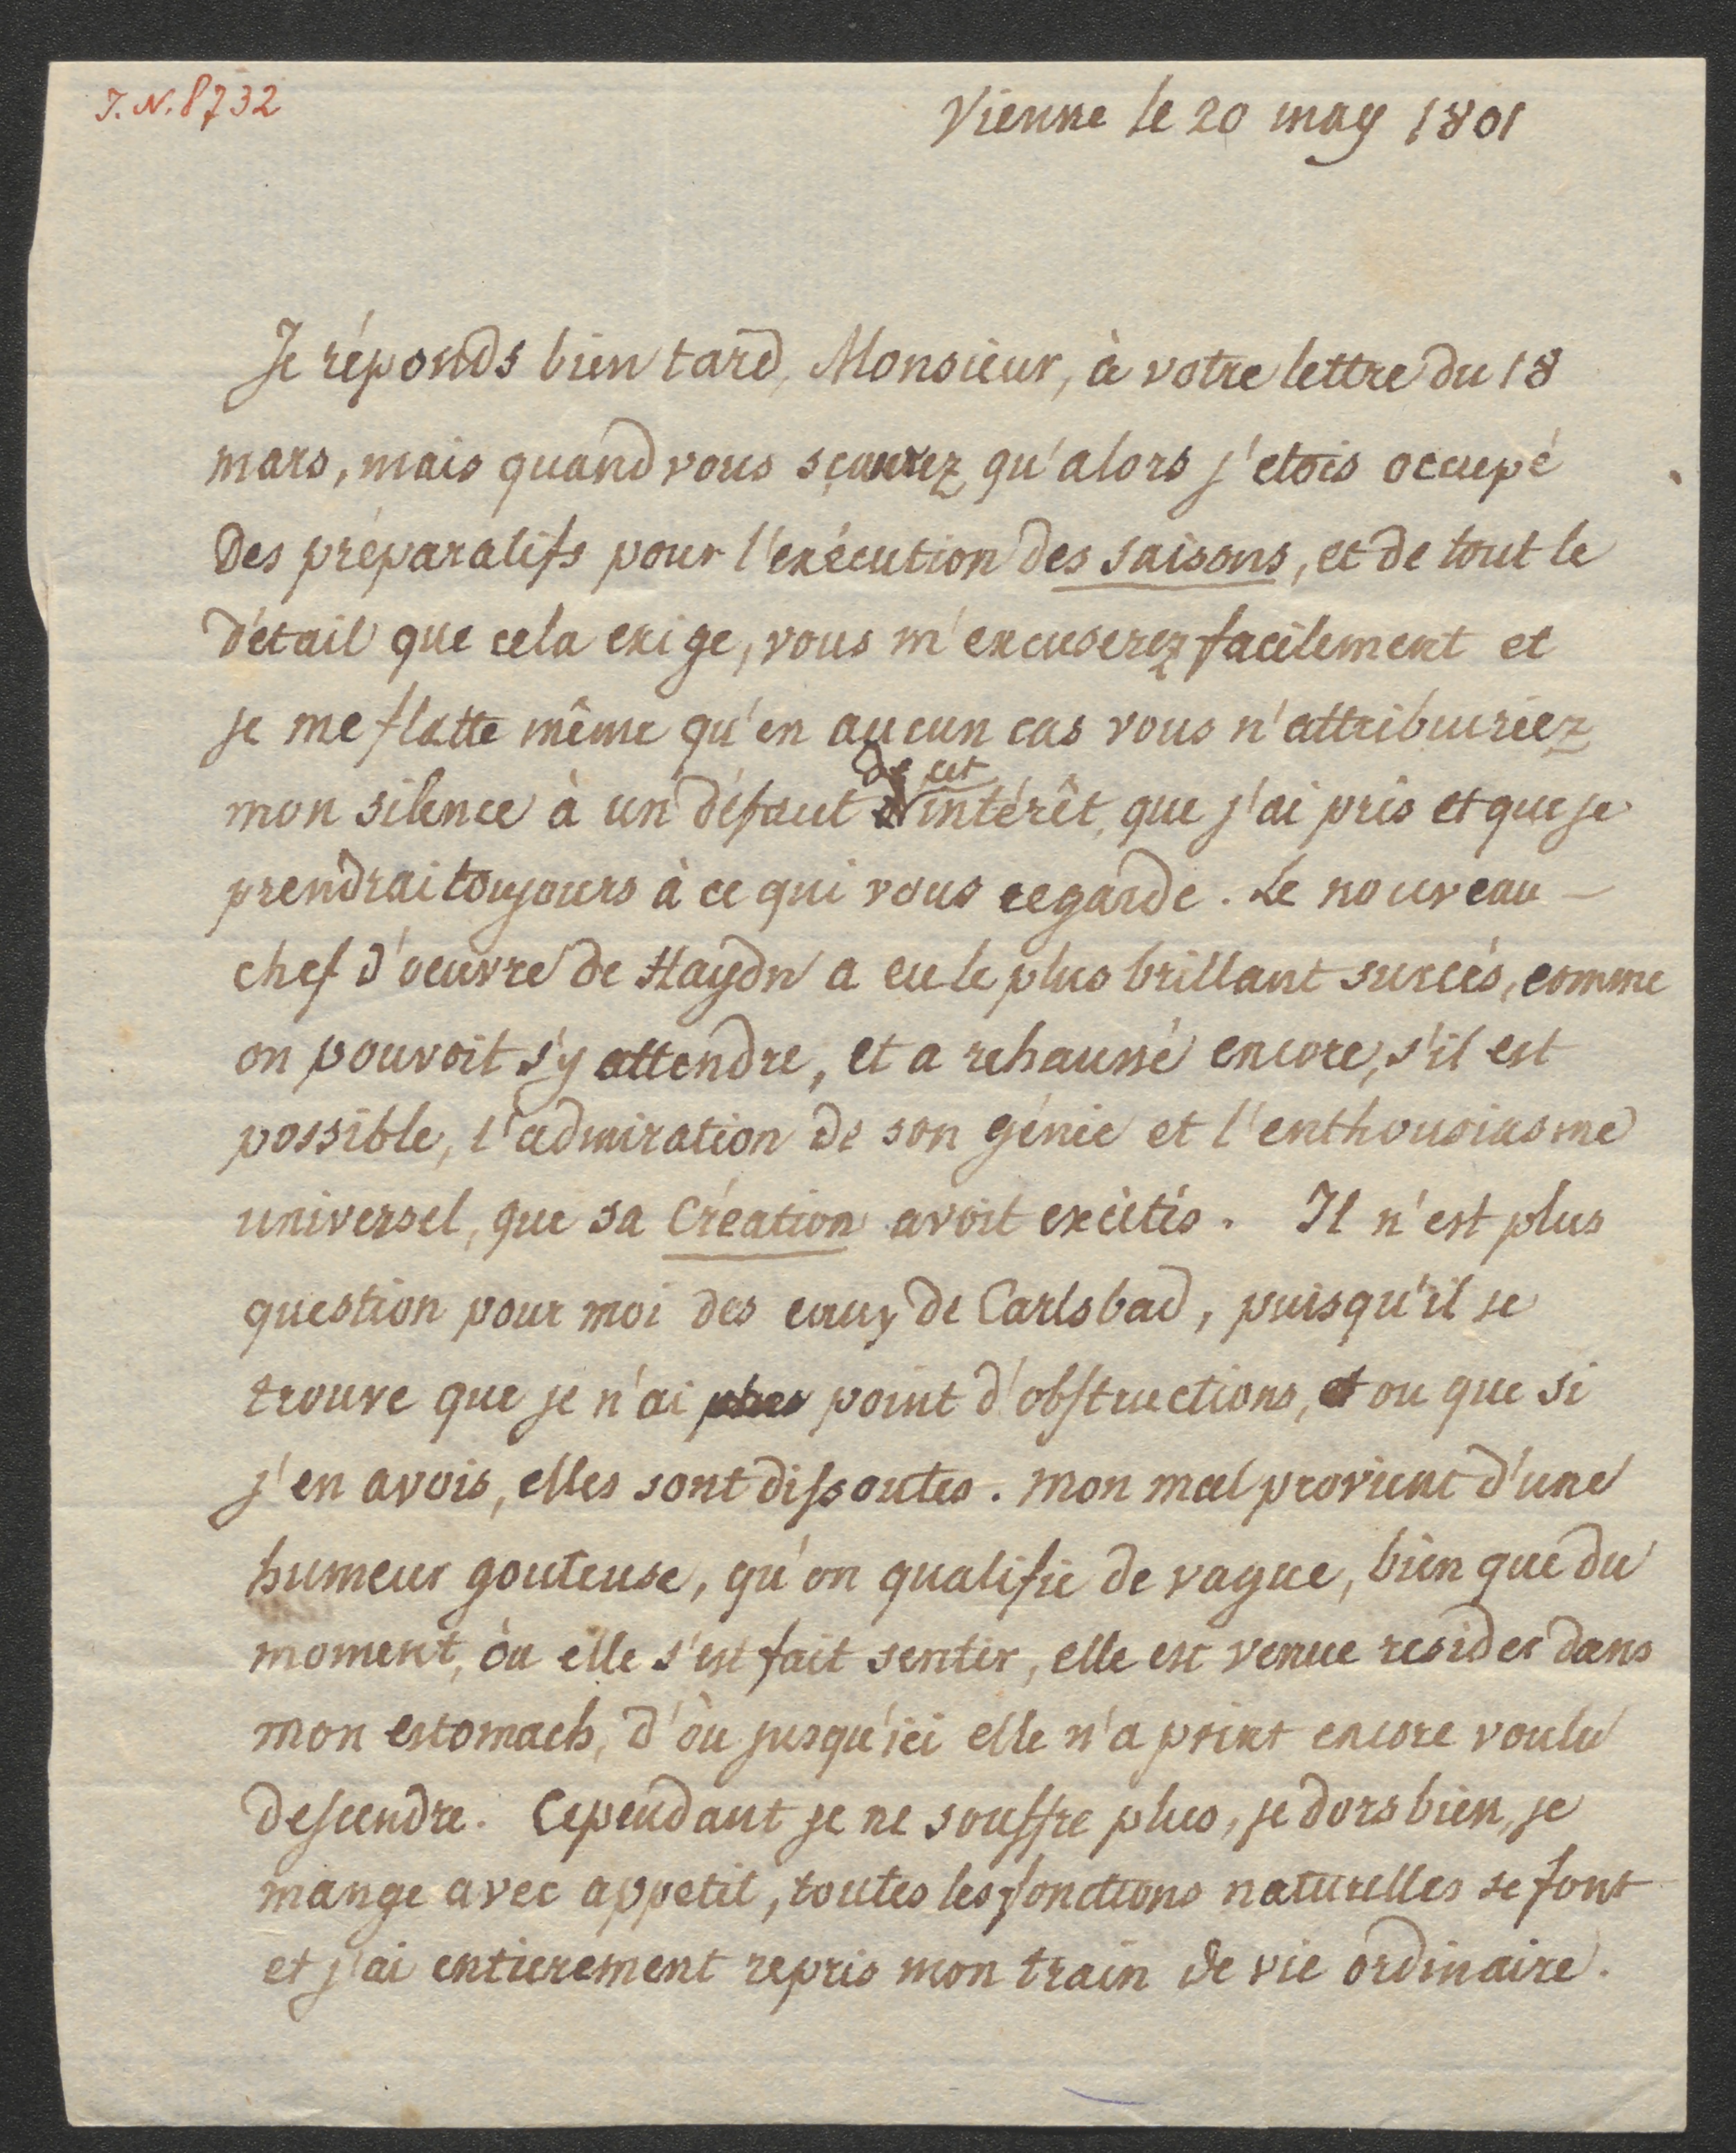 J.N. 8732
Vienne le 20 may 1801
Je réponds bien tard, Monsieur, à votre lettre du 18
mars, mais quand vous sçaurez qu'alors j'etois occupé
des préparatifs pour l'exécution des saisons, et de tout le
détail que cela exige, vous m'excuserez facilement et
je me flatte même qu'en aucun cas vous n'attribuiriez
de cet
mon silence à un défaut intérêt, que j'ai pris et que je
prendrai toujours à ce qui vous regarde. Le nouveau –
chef d'oeuvre de Haydn a eu le plus brillant succés, comme
on pouvoit s'y attendre, et a rehaussé encore, s'il est
possible, l'admiration de son génie et l'enthousiasme
universel, que sa Création avoit excités. Il n'est plus
question pour moi des eaux de Carlsbad, puisqu'il se
trouve que je n'ai plus point d'obstructions, et ou que si
j'en avois, elles sont dissoutes. Mon mal provient d'une
humeur gouteuse, qu'on qualifie de vague, bien que du
moment, où elle s'est fait sentir, elle est venue resider dans
mon estomach, d'où jusqu'ici elle n'a point encore voulu
descendre. Cependant je ne souffre plus, je dors bien, je
mange avec appetit, toutes les fonctions naturelles se font
et j'ai entierement repris mon train de vie ordinaire.